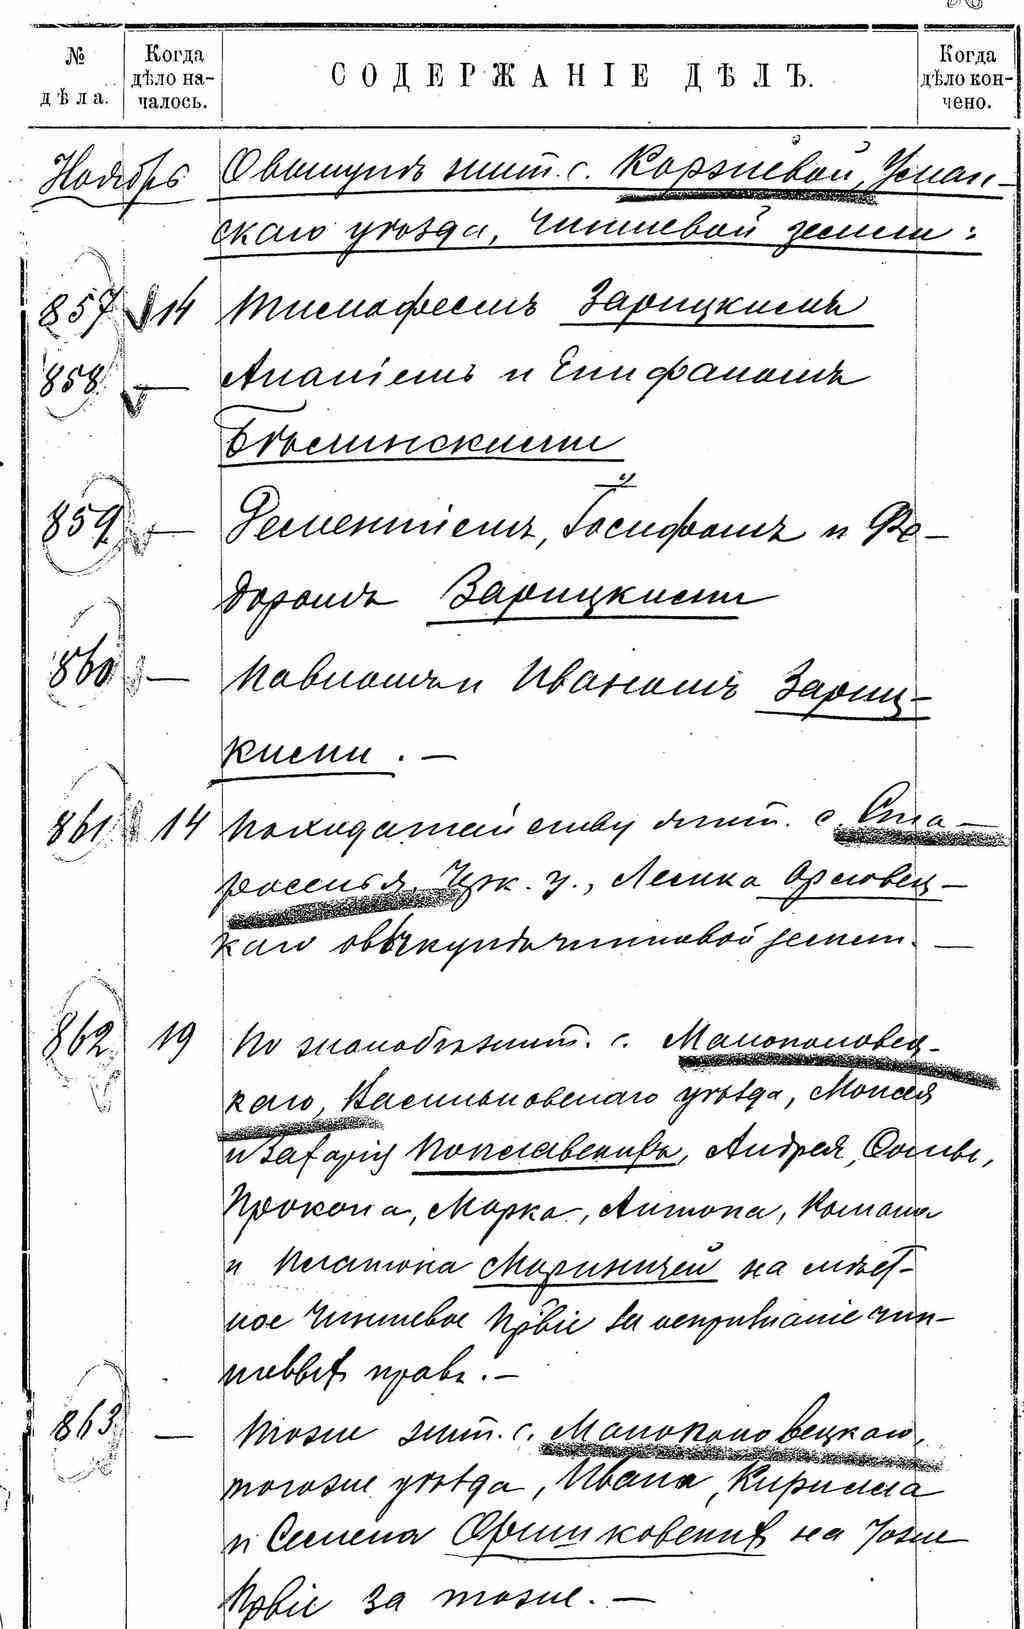 № дѣла.
Когда дѣло началось.
СОДЕРЖАНІЕ ДѢЛЪ.
Когда дѣло кончено.
Ноябрь
О выкупѣ жит. с. Коржевой, Уман-
скаго уѣзда, чиншевой земли:
857 14 Тимофеемъ Зарицкимъ
858 — Ананіемъ и Епифаномъ
Бѣлинскими
859 — Дементіемъ, Іосифомъ и Фе-
доромъ Зарицкими
860 — Павломъ и Иваномъ Зариц-
кими. —
861 14 По ходатайству жит. с. Ста-
роселья, Чрк. у., Лейки Орловец-
каго о выкупѣ чиншевой земли. —
862 19 По жалобѣ жит. с. Малополовец-
каго, Васильковскаго уѣзда, Моисея
и Захарія Поплавскихъ, Андрея,
Прокопа, Марка, Антона, Романа
и Платона на мѣст-
ное Чиншевое Првіе за непризнаніе чин-
шевыхъ правъ. —
863 — Тоже жит. с. Малополовецкаго,
тогоже уѣзда, Ивана, Кирилла
и Семена на тоже
Првіе за тоже. —